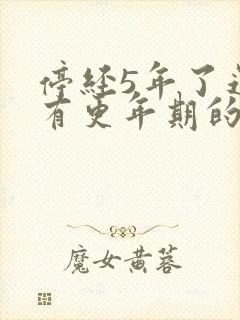 停经5年了
有更年期的
魔女黄蓉